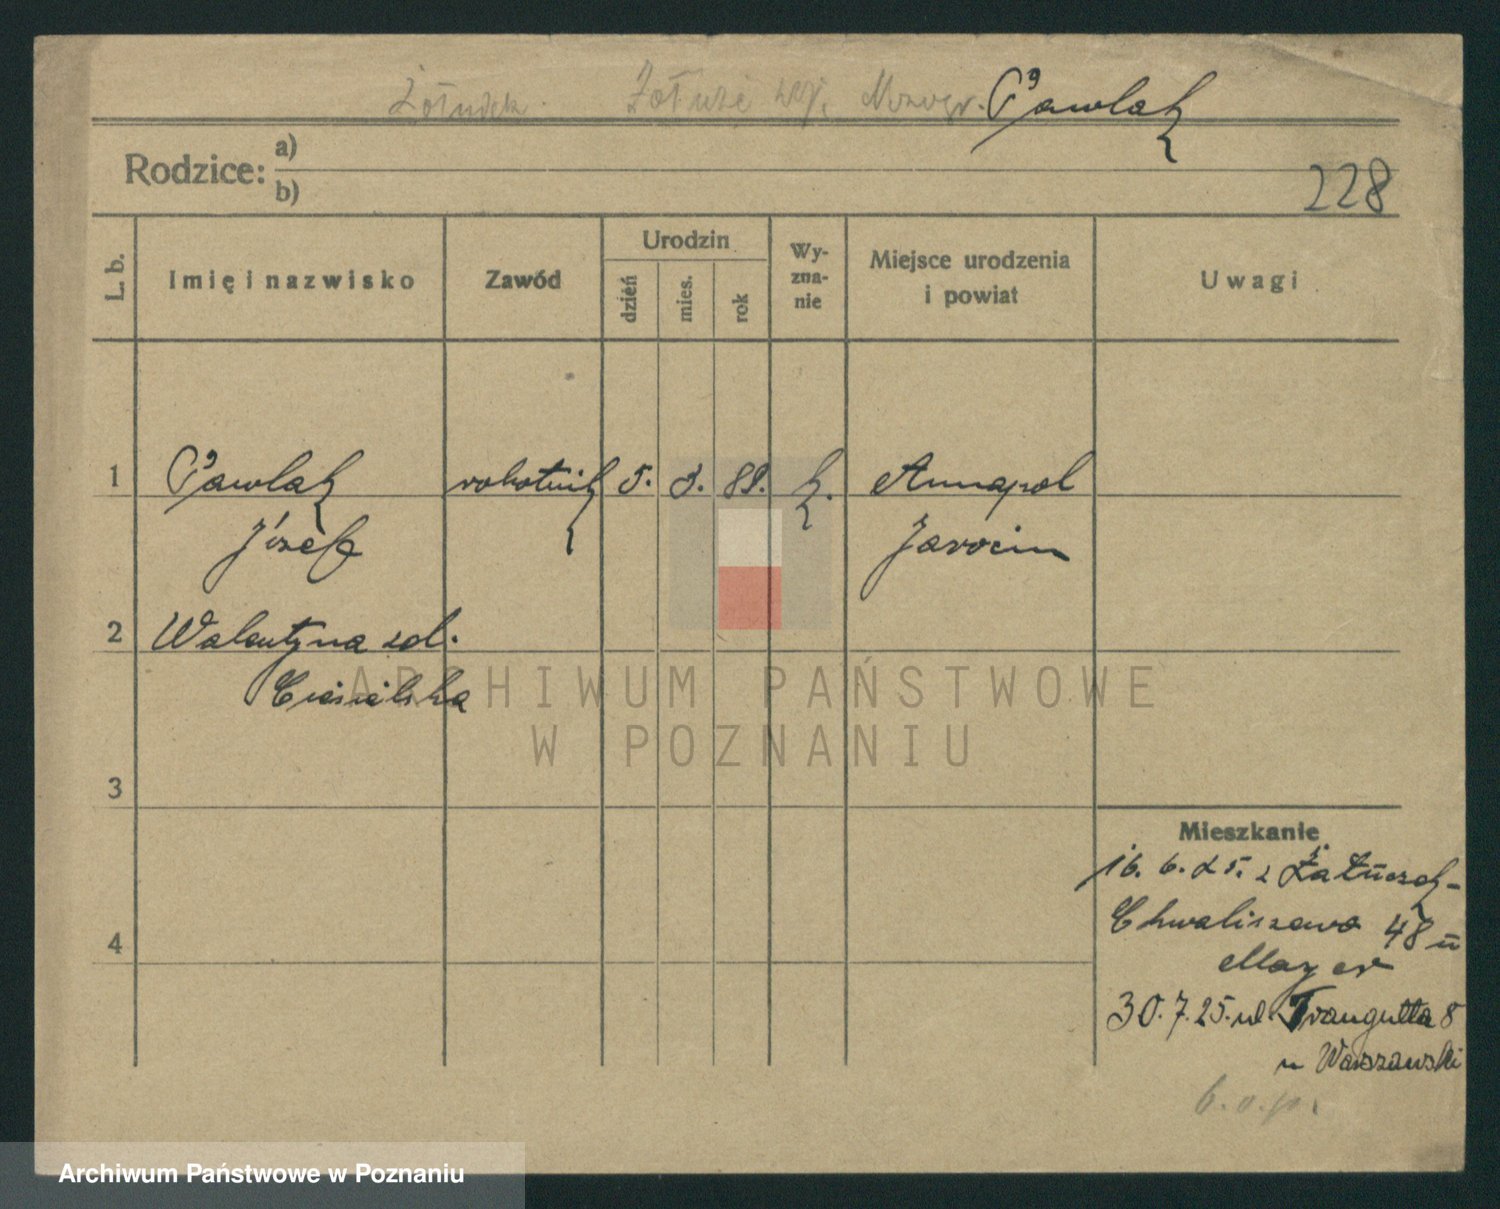 Pawlak
Rodzice: a)
b)
228
L. b.
Imię i nazwisko
Zawód
Urodzin
dzień
mies.
rok
Wy-
zna-
nie
Miejsce urodzenia
i powiat
Uwagi
1 Pawlak robotnik 5. 3. 88. k. Annapol
Józef Jarocin
2 Walentyna zd.
Ciesielska
3
4
Mieszkanie
16. 6. 25. z
Chwaliszewo 48 u
Mayer
30. 7. 25. ul. Traugutta 8
u Warszawski
b. o. p.
ARCHIWUM PAŃSTWOWE
W POZNANIU
Archiwum Państwowe w Poznaniu